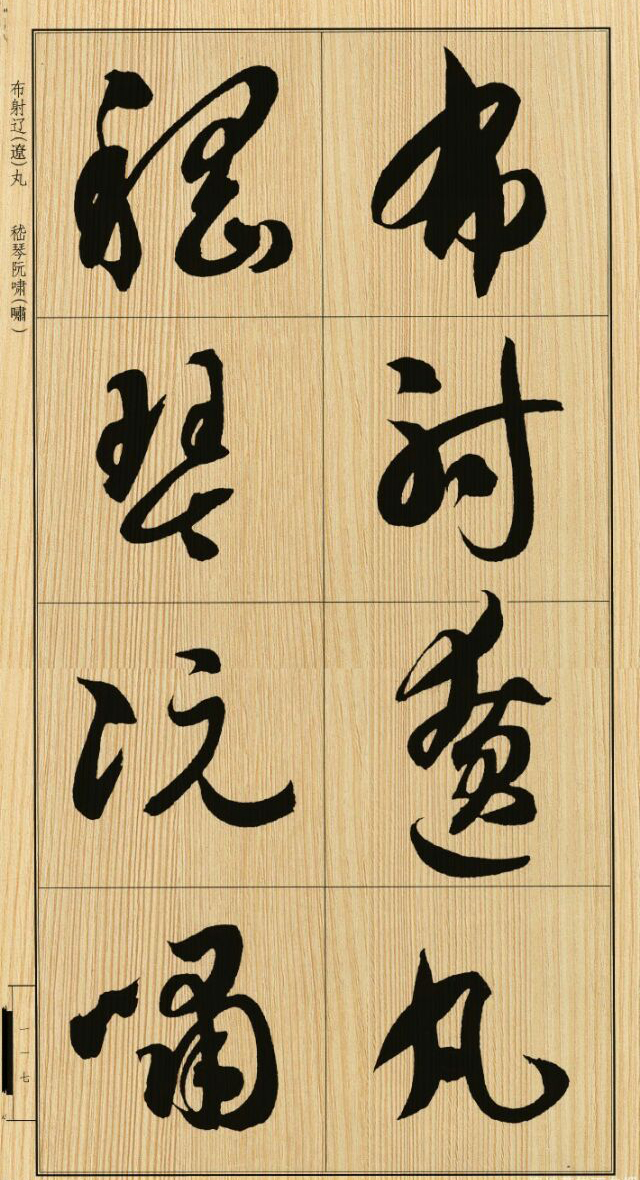 布射遼丸
嵇琴阮嘯
布射辽(遼)丸　嵇琴阮啸(嘯)
一一七